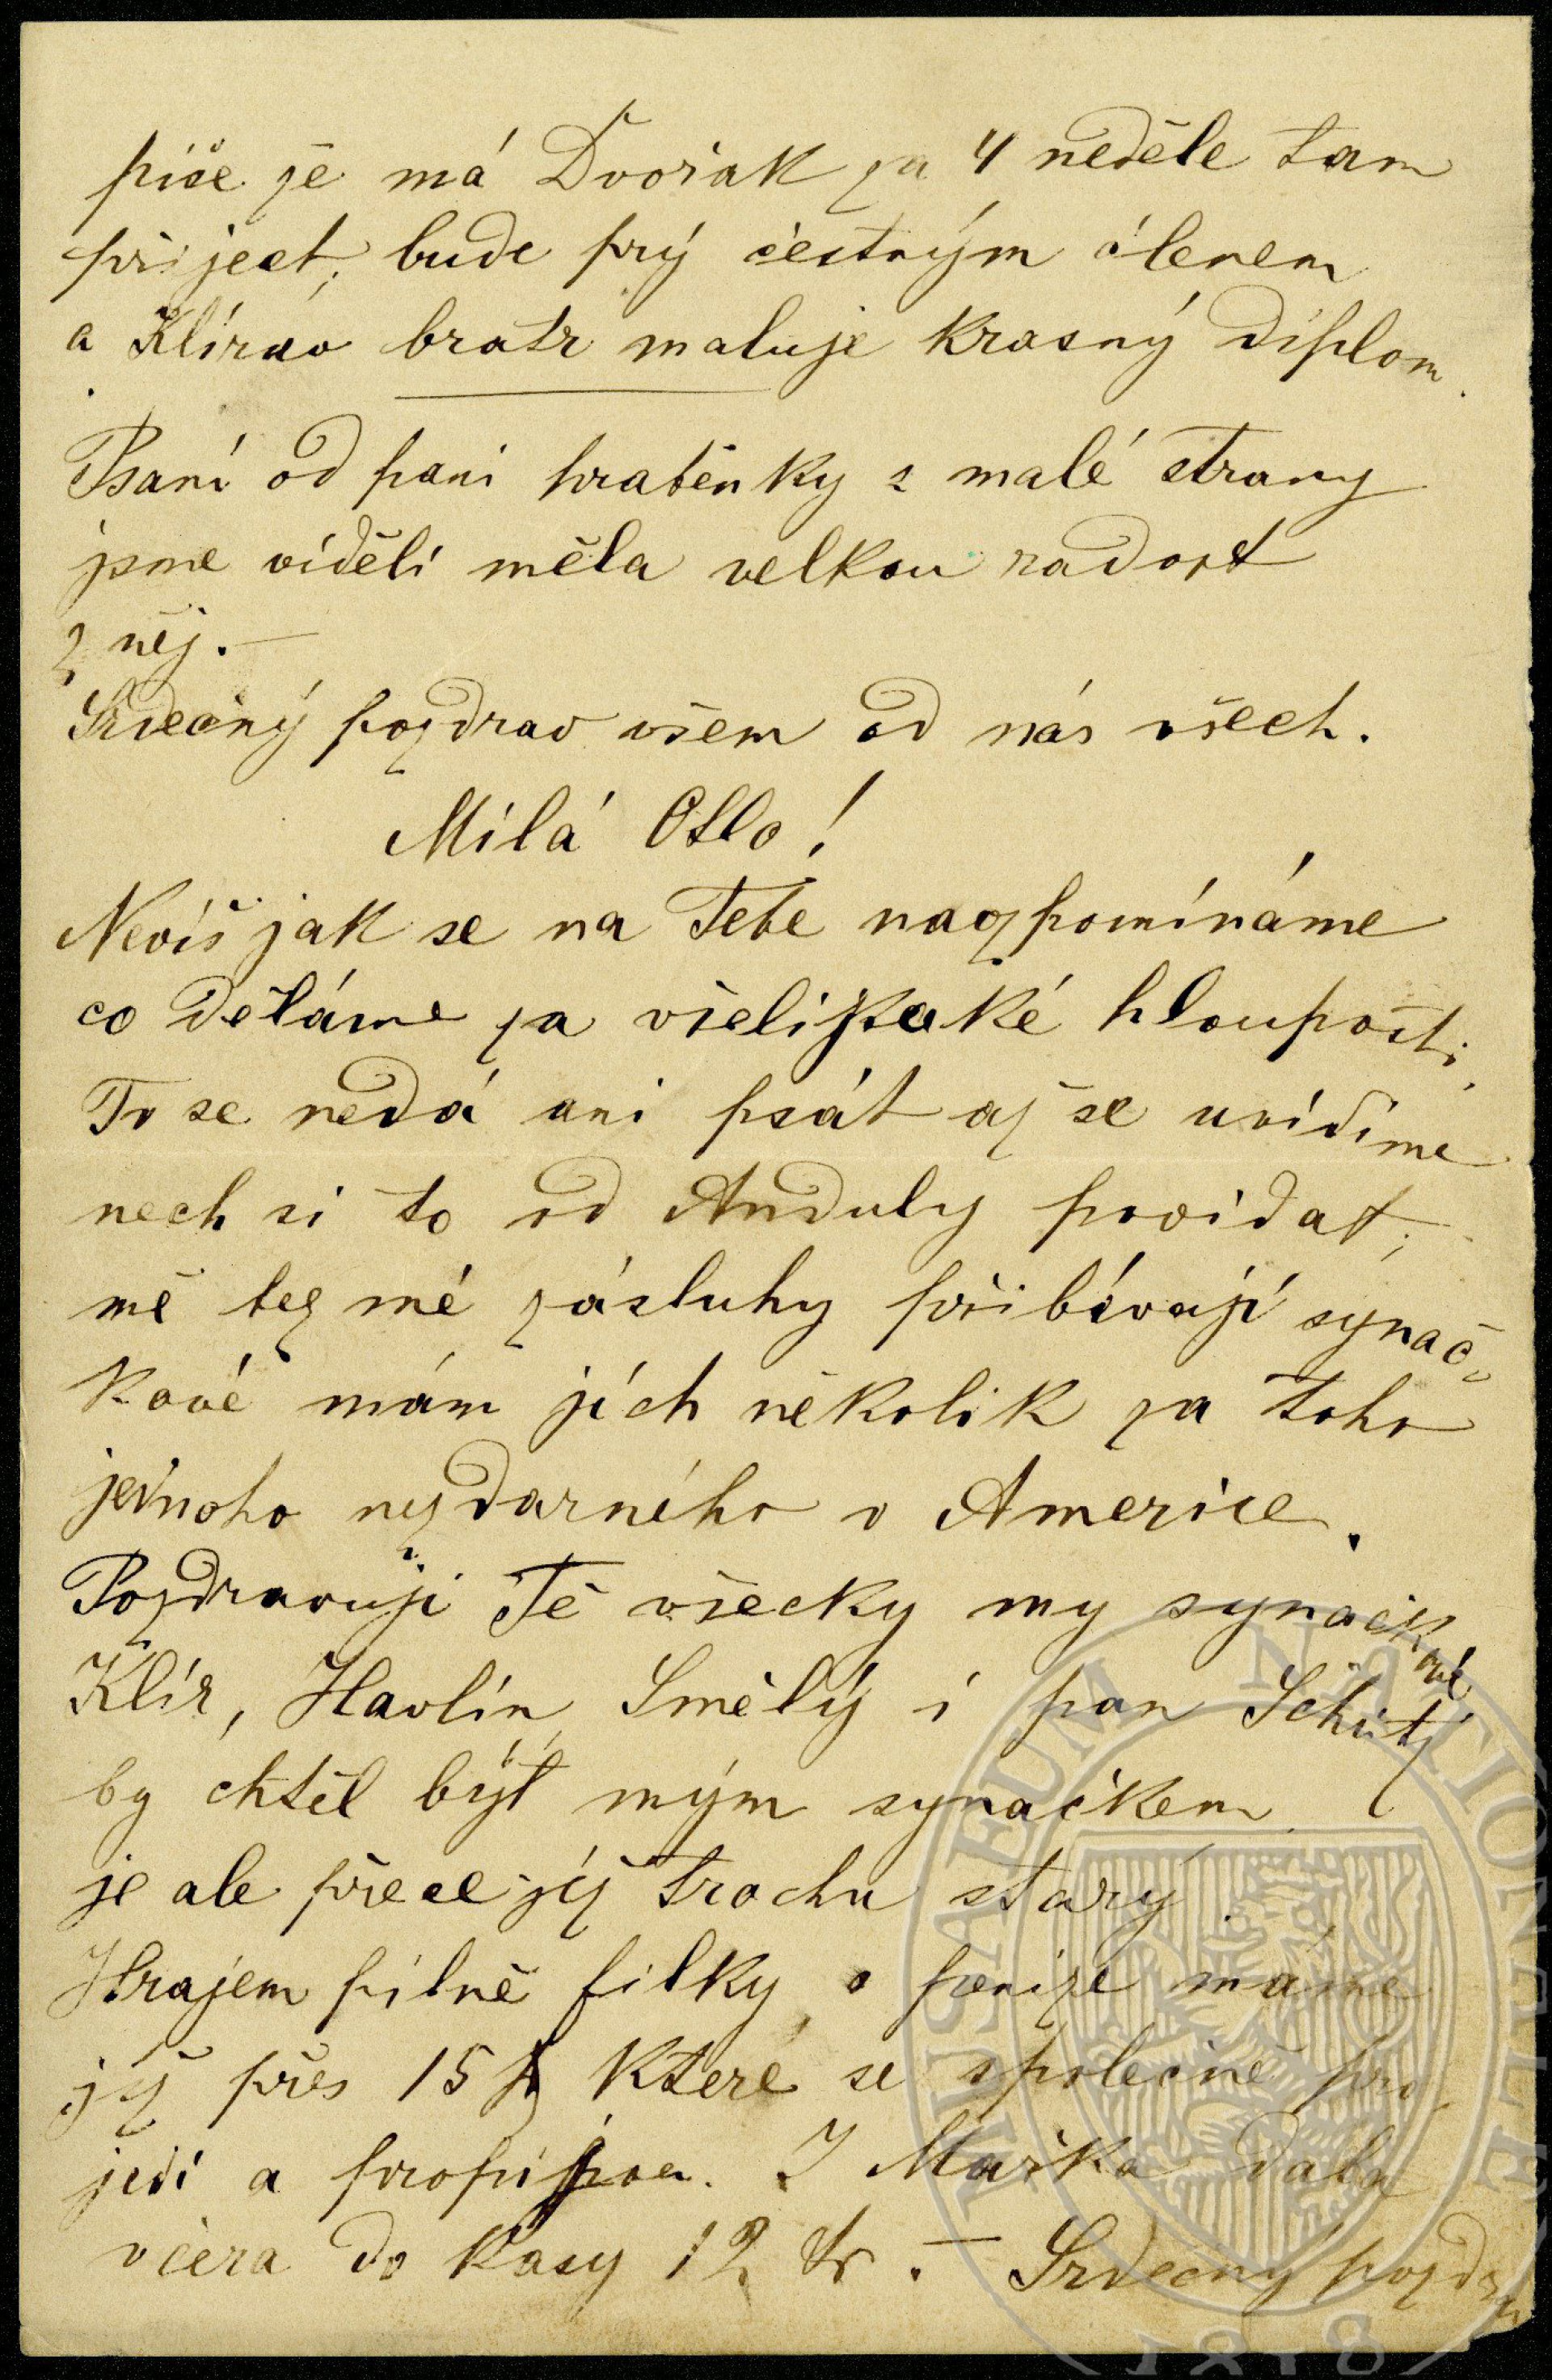 píše že má Dvořak za 4 neděle tam
přiject, bude prý čestným členem
a Klírův bratr maluje krasný diplom.
Psaní od pani hraběnky z malé strany
jsme viděli měla velkou radost
z něj. —
Srdečný pozdrav všem od nás všech.
Milá Otlo!
Nevíš jak se na Tebe navzpomínáme
co děláme za všelijaké hlouposti,
To se nedá ani psát až se uvidíme
nech si to od Anduly povidat,
mě bez mé zásluhy přibívají synáč-
kové mám jich několik za toho
jednoho nezdarného v Americe.
Pozdravuji Tě všecky my synáčkové
Klír, Havlín, Smělý i pan Schütz
by chtěl být mým synačkem
je ale přece již trochu starý.
Hrajem pilně filky, a peníze máme
již přes 15 které se společně pro
jedí a propijou. I Mařka dala
včera do kasy 12 kr. — Srdečný pozdrav
MUSAEUM NATIONALE
1818